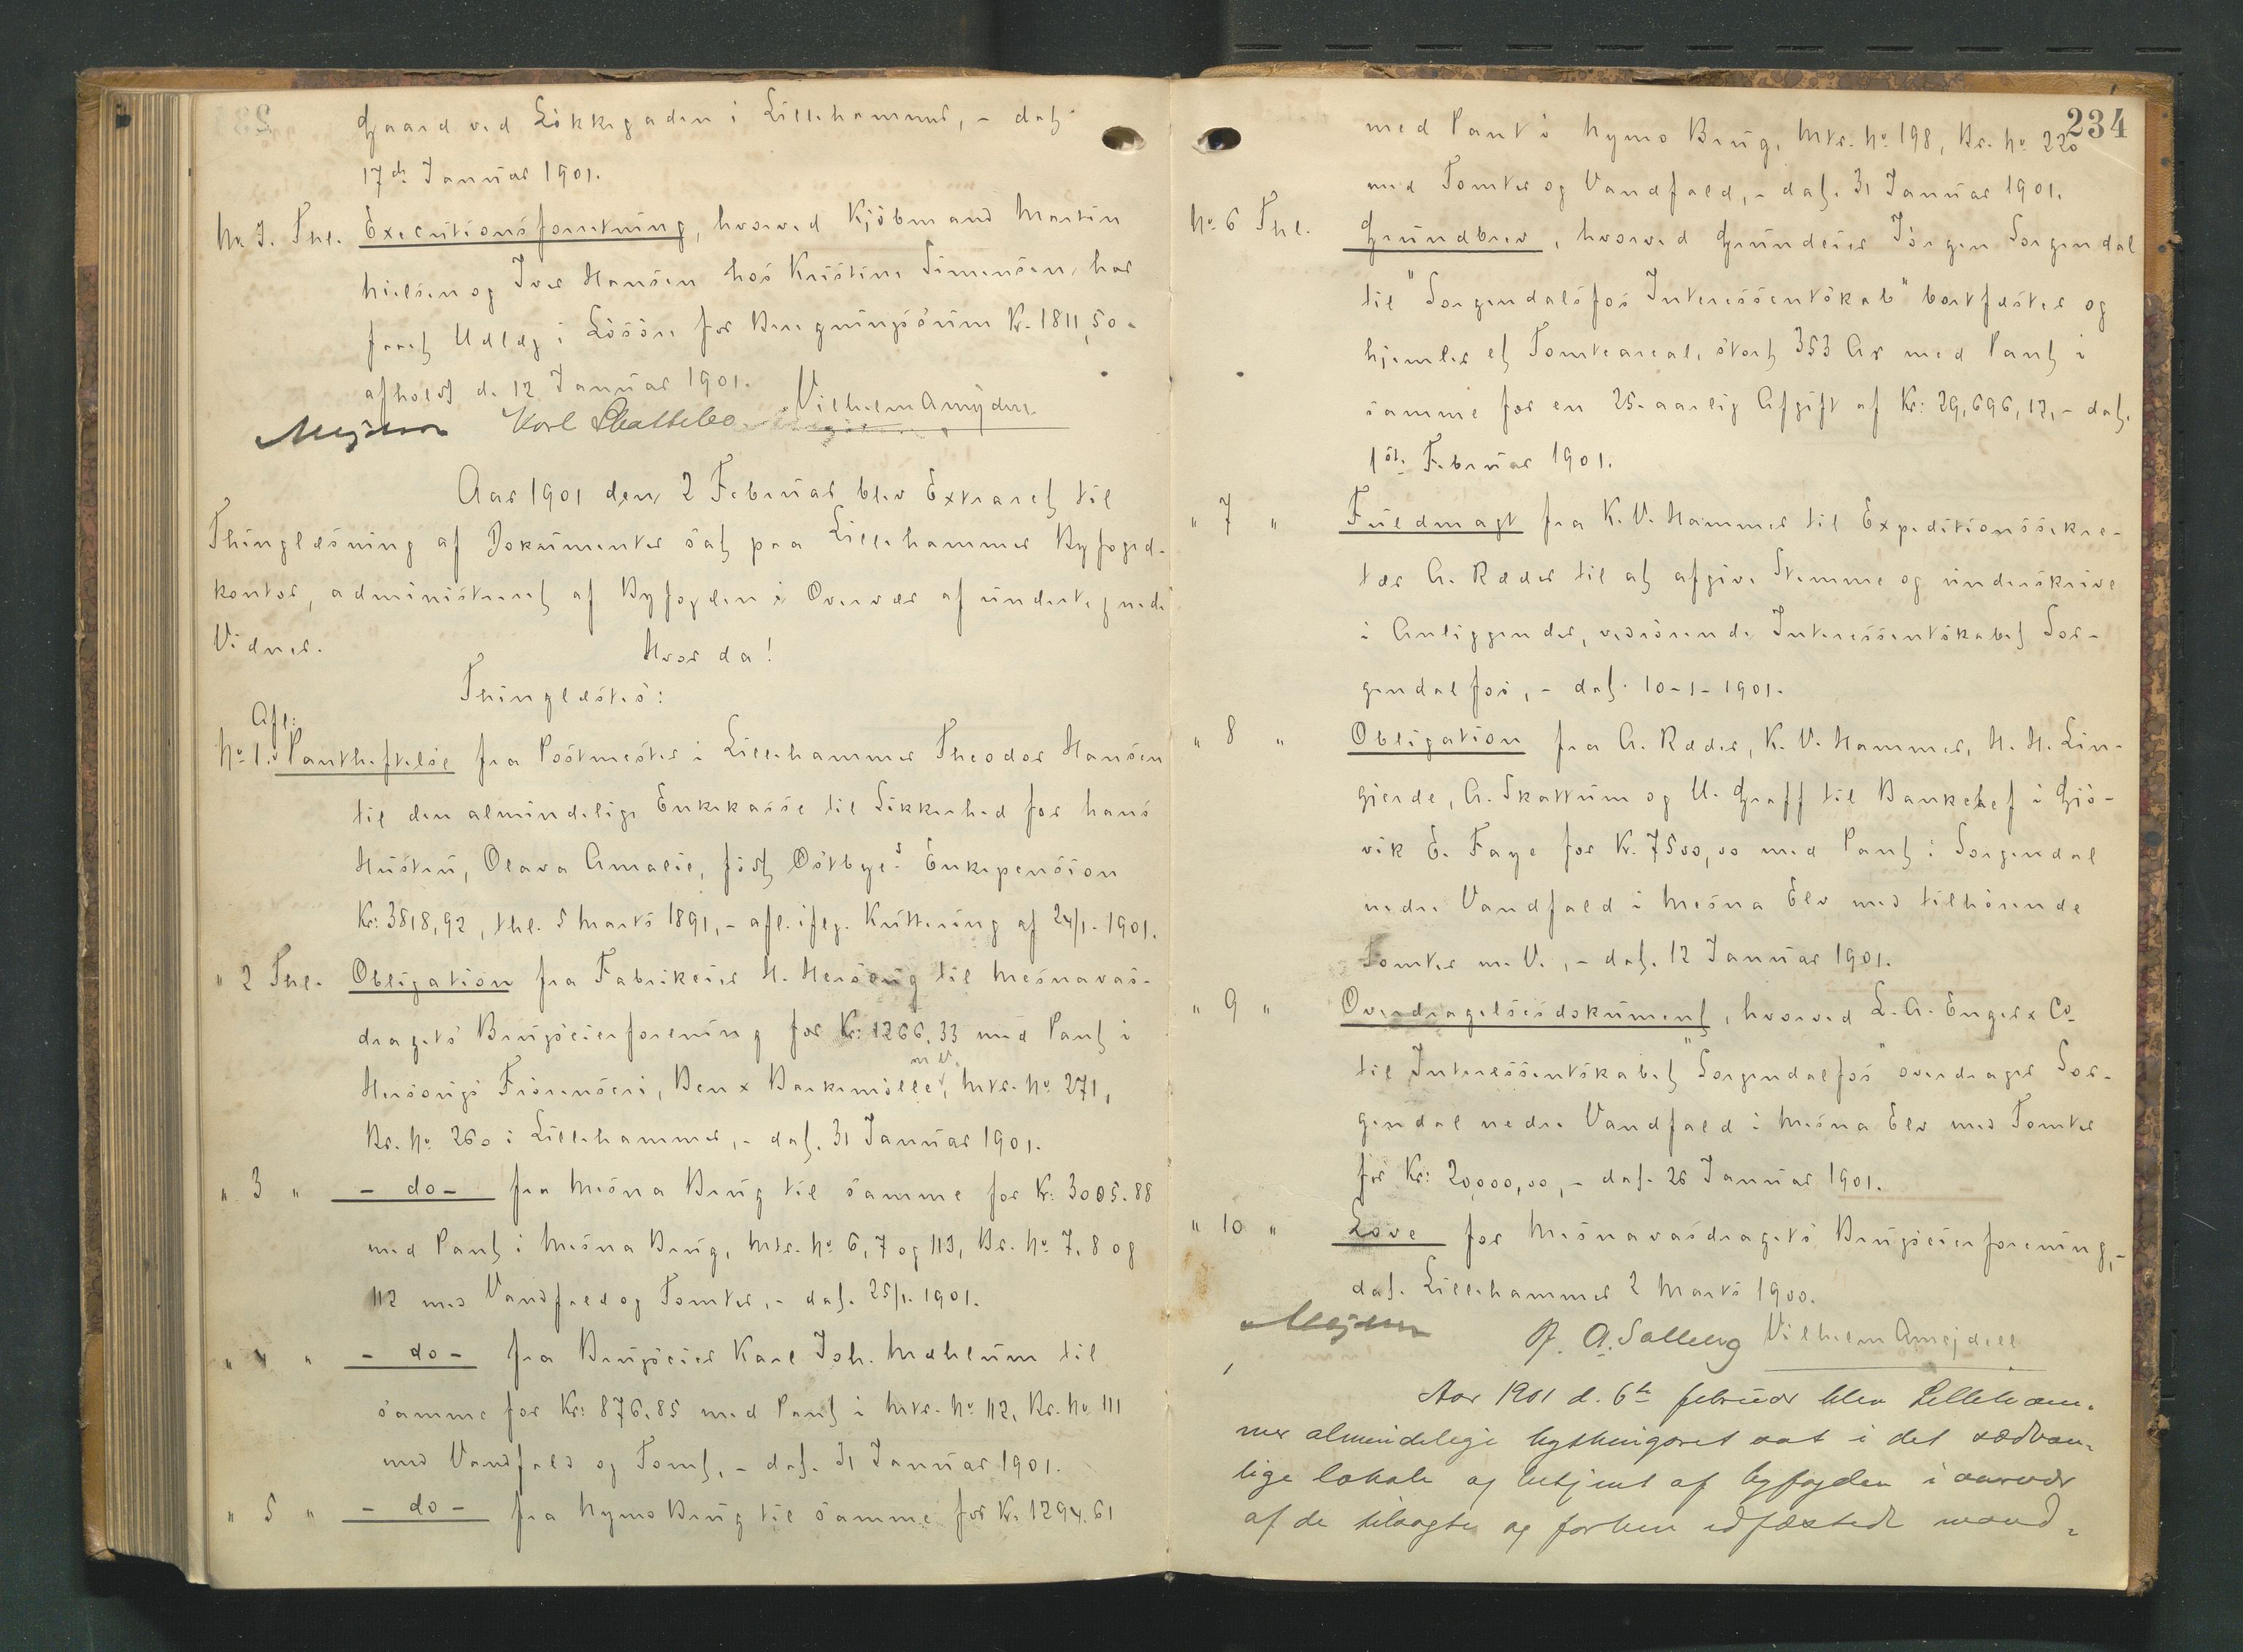 Gaard ved Løkkegaden i Lillehammer, - dat.
17de Januar 1901.
No 3. Thl. Executionsforretning, hvorved Kjøbmand Martin
Nielsen og Iver Hansen hos Kristine Simensen har
faaet Udlæg i Løsøre for Beregningssum Kr. 1811,50 -
afholdt d. 12 Januar 1901.
Mejdell Karl Skattebo Vilhelm Amejdell
Aar 1901 den 2 Februar blev Extraret til
Thinglæsning af Dokumenter sat paa Lillehammer Byfoged-
kontor, administreret af Byfogden i Overvær af undertegnede
Vidner.
Hvor da!
Thinglæstes:
Afl:
No 1. Pantheftelse fra Postmester i Lillehammer Theodor Hansen
til den almindelige Enkekasse til Sikkerhed for hans
Hustru, Olava Amalie, født Østbyes Enkepension
Kr: 3518,92, thl. 5 Marts 1891, - afl. ifølg. Kvittering af 24/1. 1901.
" 2 Thl. Obligation fra Fabrikeier H. Hersoug til Mesnavas-
dragets Brugseierforening for Kr: 1266,33 med Pant i
Hersougs Farenseri, Ben x Barkemølle m. v., Mtr. No 271,
Br. No 260 i Lillehammer, - dat. 31 Januar 1901.
" 3 " - do - fra Mesna Brug til samme for Kr: 3005.88
med Pant i Mesna Brug, Mtr. No 6, 7 og 113, Br. No 7, 8 og
112 med Vandfald og Tomter, - dat. 25/1. 1901.
" 4 " - do - fra Brugseier Karl Joh. Mæhlum til
samme for Kr: 876.85 med Pant i Mtr. No 112, Br. No 111
med Vandfald og Tomt, - dat. 31 Januar 1901.
" 5 " - do - fra Nymo Brug til samme for Kr. 1294.61
234
med Pant i Nymo Brug, Mtr. No 198, Br. No 220
med Tomter og Vandfald, - dat. 31 Januar 1901.
No 6 Thl. Grundbrev, hvorved Grundeier Jørgen Sorgendal
til "Sorgendalsfos Interessentskab" bortfæster og
hjemler et Tomteareal, stort 353 Ar med Pant i
samme for en 25-aarlig Afgift af Kr: 29,696,12, - dat.
1ste Februar 1901.
" 7 " Fuldmagt fra K. V. Hammer til Expeditionssekre-
tær A. Ræder til at afgive Stemme og underskrive
i Anliggender, vedrørende Interessentskabet Sor-
gendalfos, - dat. 10-1-1901.
" 8 " Obligation fra A. Ræder, K. V. Hammer, H. H. Lin-
gjerde, A. Skattum og U. Graff til Bankchef i Gjø-
vik E. Faye for Kr. 7500,00 med Pant i Sorgendal
nedre Vandfald i Mesna Elv med tilhørende
Tomter m. V., - dat. 12 Januar 1901.
" 9 " Overdragelsesdokument, hvorved L. A. Enger x Co
til Interessentskabet "Sorgendalfos" overdrager Sor-
gendal nedre Vandfald i Mesna Elv med Tomter
for Kr: 20,000,00, - dat. 26 Januar 1901.
" 10 " Love for Mesnavasdragets Brugseierforening, -
dat. Lillehammer 2 Marts 1900.
Mejdell A. Salberg Vilhelm Amejdell
Aar 1901 d. 6te februar blev Lilleham-
mer almindelige bythingsret sat i det sædvan-
lige lokale og betjent af byfogden i overvær
af de tilsagte og forhen edfæstede mænd,